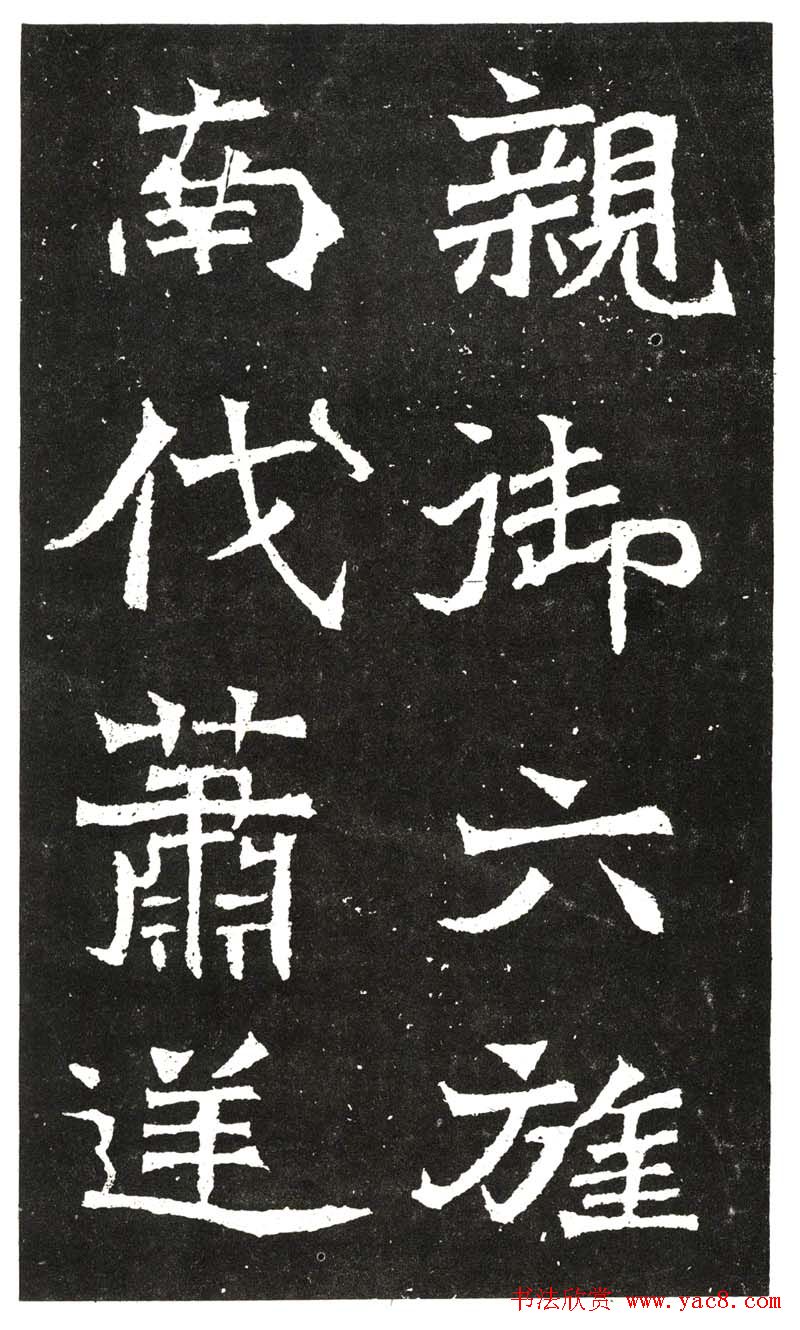 親御六旌
南伐蕭逆
书法欣赏 www.yac8.com